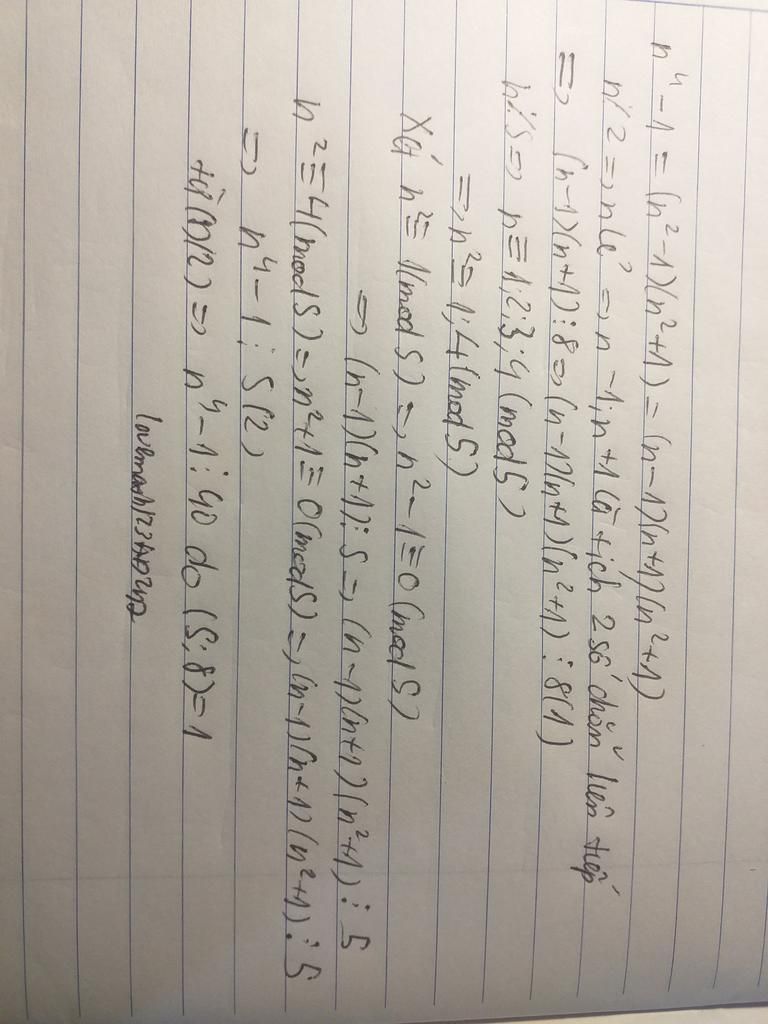 n⁴-1=(n²-1)(n²+1)=(n-1)(n+1)(n²+1)
n⋮̸2 => n lẻ => n-1;n+1 là tích 2 số chẵn liên tiếp
=> (n-1)(n+1)⋮8 => (n-1)(n+1)(n²+1)⋮8(1)
n⋮̸5 => n≡1;2;3;4(mod5)
=> n²≡1;4(mod5)
Xét n²≡1(mod5) => n²-1≡0(mod5)
=> (n-1)(n+1)⋮5 => (n-1)(n+1)(n²+1)⋮5
n²≡4(mod5) => n²+1≡0(mod5) => (n-1)(n+1)(n²+1)⋮5
=> n⁴-1⋮5(2)
từ(1)(2) => n⁴-1⋮40 do (5;8)=1